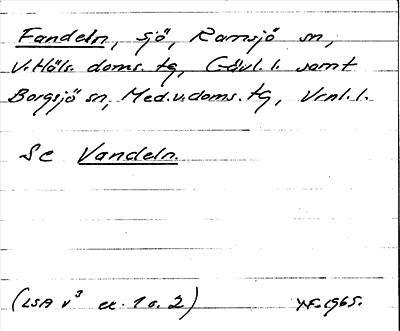 Fandeln, sjö, Ramsjö sn,
V. Häls. doms. tg, Gävl. l. samt
Borgsjö sn, Med. v. doms. tg, Vrnl. l.
Se Vandeln.
(LSA V³ ex. 1 o. 2) 1965.